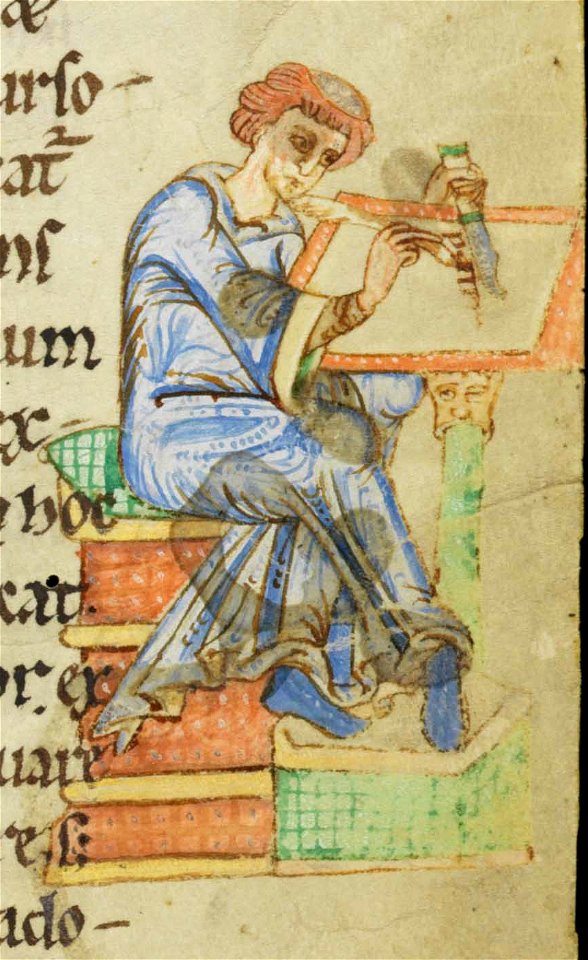 æ
urſo
cat̄
nſ
um
ex
hoc
cat.
or. ex
uare
reſ:
ado